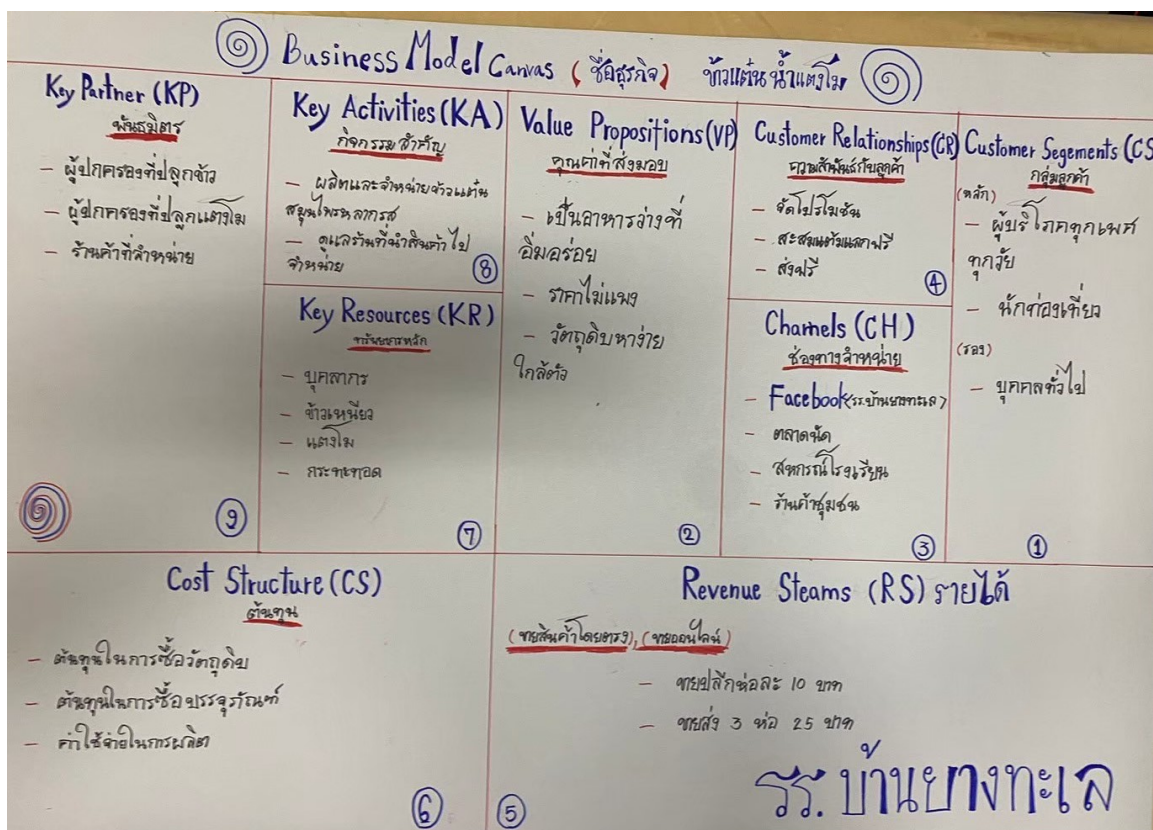 Business Model Canvas (ชื่อธุรกิจ) ข้าวแต๋นน้ำแตงโม
Key Partner (KP)
พันธมิตร
- ผู้ปกครองที่ปลูกข้าว
- ผู้ปกครองที่ปลูกแตงโม
- ร้านค้าที่จำหน่าย
9
Key Activities (KA)
กิจกรรมสำคัญ
- ผลิตและจำหน่ายข้าวแต๋น
สมุนไพรหลากรส
- ดูแลร้านที่นำสินค้าไป
จำหน่าย
8
Key Resources (KR)
ทรัพยากรหลัก
- บุคลากร
- ข้าวเหนียว
- แตงโม
- กระทะทอด
7
Value Propositions (VP)
คุณค่าที่ส่งมอบ
- เป็นอาหารว่างที่
อิ่มอร่อย
- ราคาไม่แพง
- วัตถุดิบหาง่าย
ใกล้ตัว
2
Customer Relationships (CR)
ความสัมพันธ์กับลูกค้า
- จัดโปรโมชัน
- สะสมแต้มแลกฟรี
- ส่งฟรี
4
Channels (CH)
ช่องทางจำหน่าย
- Facebook (รร.บ้านยางทะเล)
- ตลาดนัด
- สหกรณ์โรงเรียน
- ร้านค้าชุมชน
3
Customer Segements (CS
กลุ่มลูกค้า
(หลัก)
- ผู้บริโภคทุกเพศ
ทุกวัย
- นักท่องเที่ยว
(รอง)
- บุคคลทั่วไป
1
Cost Structure (CS)
ต้นทุน
- ต้นทุนในการซื้อวัตถุดิบ
- ต้นทุนในการซื้อบรรจุภัณฑ์
- ค่าใช้จ่ายในการผลิต
6
Revenue Steams (RS) รายได้
(ขายสินค้าโดยตรง), (ขายออนไลน์)
- ขายปลีกห่อละ 10 บาท
- ขายส่ง 3 ห่อ 25 บาท
5
รร. บ้านยางทะเล